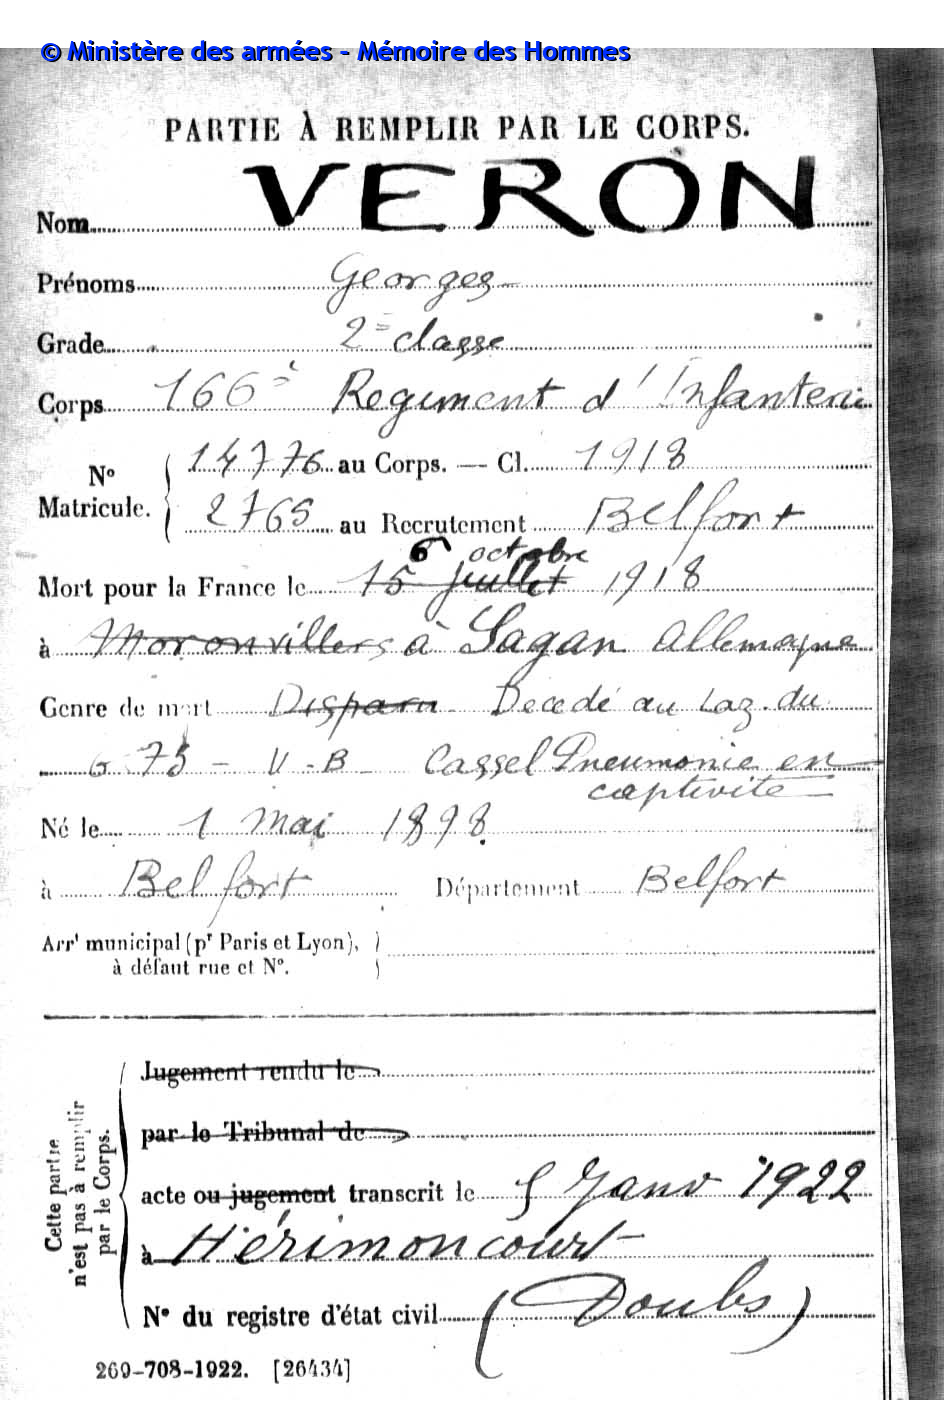 © Ministère des armées - Mémoire des Hommes
PARTIE À REMPLIR PAR LE CORPS.
Nom VERON
Prénoms Georges
Grade 2e classe
Corps 166è Regiment d'Infanterie
No Matricule. 14776 au Corps. — Cl. 1918
2765 au Recrutement Belfort
6 octobre
Mort pour la France le 15 juillet 1918
à Moronvillers à Sagan Allemagne
Genre de mort Disparu Decedé au Laz. du
6 75 - V-B Cassel Pneumonie en
captivité
Né le 1 Mai 1898
à Belfort Département Belfort
Arrt municipal (pr Paris et Lyon),
à défaut rue et No.
Cette partie
n'est pas à remplir
par le Corps.
Jugement rendu le
par le Tribunal de
acte ou jugement transcrit le 5 Janv 1922
à Hérimoncourt
No du registre d'état civil (Doubs)
269-708-1922. [26434]